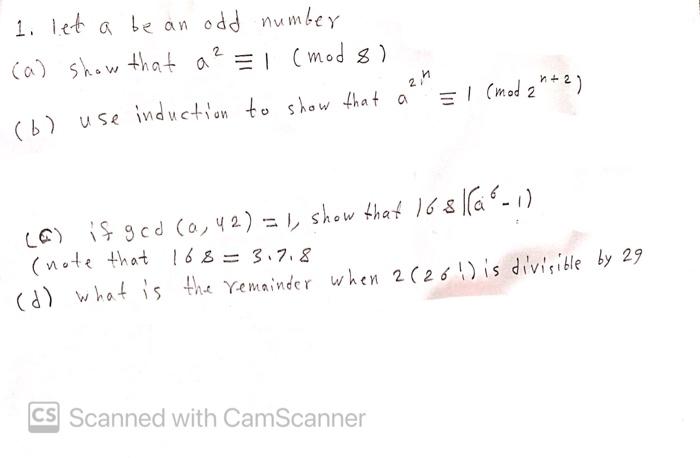 1. let a be an odd number
(a) show that a² ≡ 1 (mod 8)
(b) use induction to show that a^2^n ≡ 1 (mod 2^n+2)
(c) if gcd (a, 42) = 1, show that 168|(a⁶-1)
(note that 168 = 3.7.8
(d) what is the remainder when 2(26!) is divisible by 29
CS Scanned with CamScanner